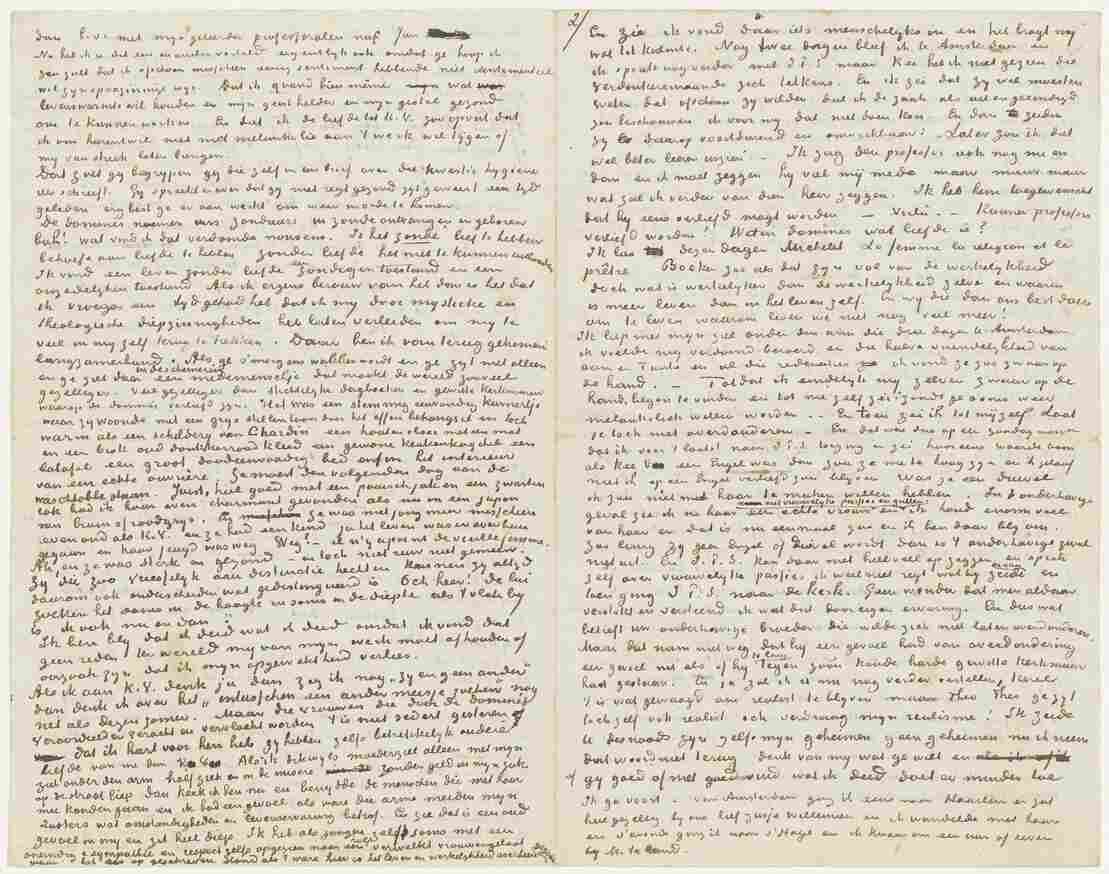 dan b.v. met mijn geleerde professoralen neef Jan
Nu heb ik u dit een en ander verteld eigentlijk ook omdat ge hoop ik
zou zult dat ik ofschoon misschien eenig sentiment hebbende niet sentimenteel
wil zyn op onzinnige wys. Dat ik quand bien même wat
levenswarmte wil houden en mijn geest helder en mijn gestel gezond
om te kunnen werken. En dat ik de liefde tot K.V. zoo opvat dat
ik om harentwil niet met melankolie aan 't werk wil tijgen of
my van streek laten brengen.
Dat zult gy begrypen gy die zelf in uw brief over die kwestie hygiene
iets schreeft. Gy spreekt er over dat gy niet regt gezond zyt geweest een tyd
geleden erg best ge er aan werkt om weer monter te komen.
De domines noemen ons zondaars in zonde ontvangen en geboren
bah! wat vind ik dat verdomde nonsens. Is het zonde lief te hebben
behoefte aan liefde te hebben zonder liefde het niet te kunnen uithouden
Ik vind een leven zonder liefde een zondigen toestand en een
onzedelyken toestand. Als ik ergens berouw van heb dan is het dat
ik vroeger een tyd gehad heb dat ik my door mystieke en
theologische diepzinnigheden heb laten verleiden om my te
veel in my zelf terug te trekken. Daar ben ik van teruggekomen
langzamerhand. Als ge s'morgens wakker wordt en ge zyt niet alleen
en ge ziet daar in de schemering een medemenschje dat maakt de wereld zooveel
gezelliger. Veel gezelliger dan stichtelyke dagboeken en gewitte kerkmuren
waarop de domines verliefd zyn. Het was een stemmig eenvoudig kamertje
waar zy woonde met een grys stillen toon door het effen behangsel en toch
warm als een schildery van Chardin een houten vloer met een mat
en een brok oud donkerrood kleed een gewone keukenkagchel een
latafel een groot doodeenvoudig bed enfin het interieur
van een echte ouvrière. Ze moest den volgenden dag aan de
waschtobbe staan. Juist, heel goed met een paarsch jak en een zwarten
rok had ik haar even charmant gevonden als nu in een japon
van bruin of roodgrys. En ze was niet jong meer misschien
even oud als K.V. en ze had een kind ja het leven was er over heen
gegaan en haar jeugd was weg. Weg? – il n'y a point de vieille femme.
Ah en ze was sterk en gezond en toch niet ruw niet gemeen.
Zy die zoo vreesselyk aan distinctie hechten kunnen zy altyd
daarom ook onderscheiden wat gedistingueerd is Och heer! de lui
zoeken het soms in de hoogte en soms in de diepte als 't vlak by
is ik ook nu en dan.
Ik ben bly dat ik deed wat ik deed omdat ik vond dat
geen reden ter wereld my van myn werk moet afhouden of
oorzaak zyn dat ik myn opgewektheid verlies.
Als ik aan K.V. denk ja dan zeg ik nog „zy en geen ander"
dan denk ik over het „intusschen een ander meisje zoeken" nog
net als dezen zomer. Maar die vrouwen die door de domines
veroordeeld en veracht en vervloekt worden 't is niet sedert gisteren
dat ik hart voor hen heb zy hebben zelfs betrekkelyk oudere
liefde van me dan K.V. Als ik dikwyls moederziel alleen met myn
ziel onder den arm half ziek en in de misère zonder geld in myn zak
op de straat liep dan keek ik hen na en benydde de menschen die met haar
mee konden gaan en ik had een gevoel als waren die arme meiden myn
zusters wat omstandigheden en levenservaring betrof. En zie dat is een oud
gevoel in my en zit heel diep. Ik heb als jongen zelfs soms met een
oneindige sympathie en respect zelfs opgezien naar een half verwelkt vrouwengelaat
waar het als op geschreven stond als 't ware hier is het leven en werkelykheid overheen
2/
En zie ik vond daar iets menschelyks in en het bragt my
wat tot kalmte. Nog twee dagen bleef ik te Amsterdam en
ik sprak nog verder met J.P.S. maar Kee heb ik niet gezien die
verdonkeremaande zich telkens. En ik zei dat zy wel moesten
weten dat ofschoon zy wilden dat ik de zaak als uit en geeindigd
zou beschouwen ik voor my dat niet doen kon. En dan zeiden
zy daarop voortdurend en onwrikbaar: „Later zou ik dat
wel beter leeren inzien". – Ik zag den professor ook nog nu en
dan en ik moet zeggen hy viel my mede maar maar maar
wat zal ik verder van dien heer zeggen. Ik heb hem toegewenscht
dat hy eens verliefd mogt worden – Voilà. – Kunnen professors
verliefd worden? Weten domines wat liefde is?
Ik las dezer dagen Michelet La femme la religion et le
prêtre. Boeken zoo als dat zyn vol van de werkelykheid
doch wat is werkelyker dan de werkelykheid zelve en waarin
is meer leven dan in het leven zelf. En wy die dan ons best doen
om te leven waarom leven we niet nog veel meer!
Ik liep met myn ziel onder den arm die drie dagen te Amsterdam
ik voelde my verdomd beroerd en die halve vriendelykheid van
oom en Tante en al die redenaties ik vond ze zoo zwaar op
de hand. – Tot dat ik eindelyk my zelven zwaar op de
hand begon te vinden en tot me zelf zei: zouds ge soms weer
melankoliek willen worden. – En toen zei ik tot mijzelf Laat
je toch niet overdonderen. – En dat was dus op een Zondag morgen
dat ik voor 't laatst naar J.P.S. toe ging en zei: hoor eens waarde oom
als Kee Vos een Engel was dan zou ze me te hoog zyn en ik geloof
niet ik op een Engel verliefd zou blyven Was ze een duivel
ik zou niet met haar te maken willen hebben. In 't onderhavige
geval zie ik in haar een echte vrouw met vrouwelyke passies en grillen en ik houd enorm veel
van haar en dat is nu eenmaal zoo en ik ben daar bly om.
Zoo lang zy geen Engel of Duivel wordt dan is 't onderhavige geval
niet uit. En J.P.S. kon daar niet heel veel op zeggen en sprak
zelf over vrouwelyke passies ik weet niet regt wat hy er van zeide en
toen ging J.P.S. naar de kerk. Geen wonder dat men aldaar
verstokt en versteend ik weet dat door eigen ervaring. En dus wat
betreft uw onderhavige broeder die wilde zich niet laten overdonderen,
maar dat nam niet weg dat hy een gevoel had van overdondering
een gevoel net als of hy te lang tegen zoo'n koude harde gewitte kerkmuur
had gestaan. En ja zal ik u nu nog verder vertellen, kerel
't is wat gewaagd om realist te blyven maar Theo Theo ge zyt
toch zelf ook realist och verdraag myn realisme! Ik zeide
u desnoods zyn zelfs myn geheimen geen geheimen nu ik neem
dat woord niet terug denk van my wat ge wilt en
gy goed of niet goed vind wat ik deed doet er minder toe
Ik ga voort. – van Amsterdam ging ik eens naar Haarlem en zat
heel gezellig by ons lief zusje Willemien en ik wandelde met haar
en s'avonds ging ik naar s'Hage en ik kwam om een uur of zeven
by M. te land.